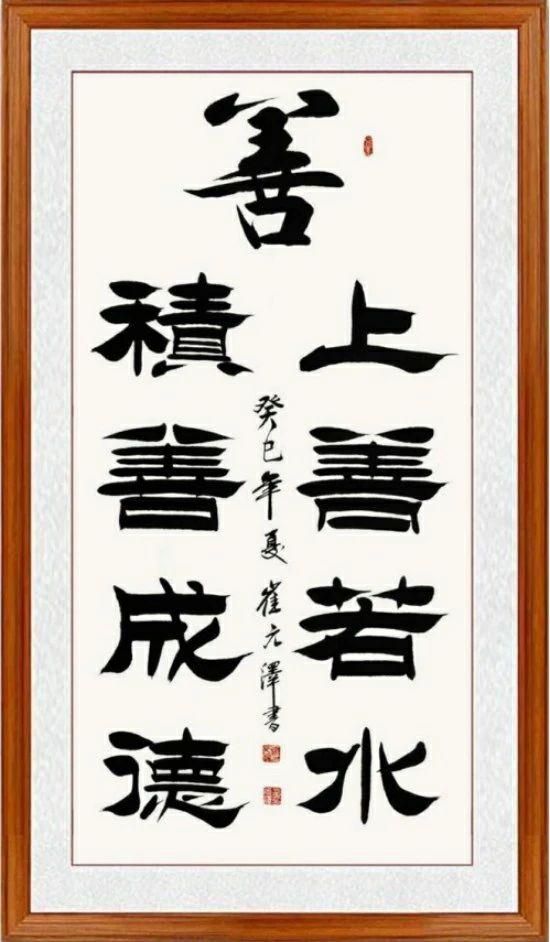 善
上善若水
積善成德
癸巳年夏崔元澤書